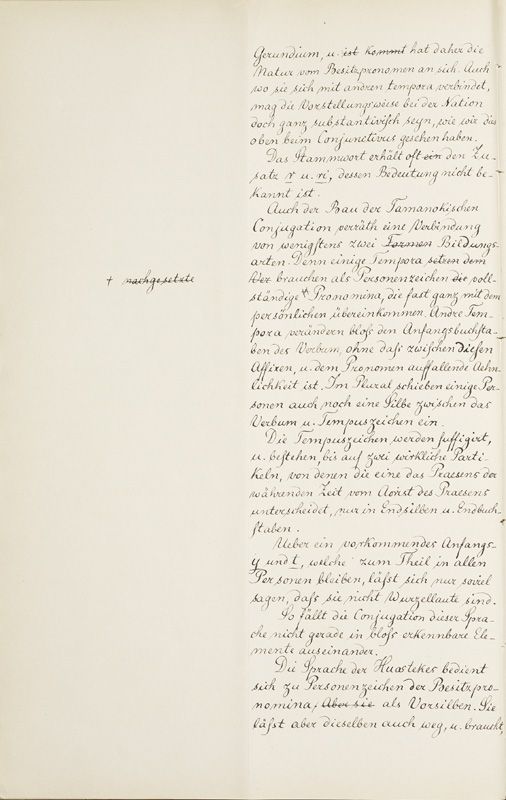 Gerundium, u. ist kommt hat daher die
Natur vom Besitzpronomen an sich. Auch
wo sie sich mit andren tempora verbindet,
mag die Vorstellungsweise bei der Nation
doch ganz substantivisch seyn, wie wir dies
oben beim Conjunctivus gesehen haben.
Das Stammwort erhält oft ein den Zu-
satz r u. ri, dessen Bedeutung nicht be-
kannt ist.
Auch der Bau der Tamanakischen
Conjugation verräth eine Verbindung
von wenigstens zwei Formen Bildungs-
arten. Denn einige Tempora setzen dem
† nachgesetzte
brauchen als Personenzeichen die voll-
ständige † Pronomina, die fast ganz mit dem
persönlichen übereinkommen. Andre Tem-
pora verändern bloss den Anfangsbuchsta-
ben des Verbum, ohne dass zwischen diesen
Affixen, u. dem Pronomen auffallende Aehn-
lichkeit ist. Im Plural schieben einige Per-
sonen auch noch eine Silbe zwischen das
Verbum u. Tempuszeichen ein.
Die Tempuszeichen werden suffigirt,
u. bestehen, bis auf zwei wirkliche Parti-
keln, von denen die eine das Praesens der
währenden Zeit vom Aorist des Praesens
unterscheidet, nur in Endsilben u. Endbuch-
staben.
Ueber ein vorkommendes Anfangs-
y und t, welche zum Theil in allen
Personen bleiben, lässt sich nur soviel
sagen, dass sie nicht Wurzellaute sind.
So fällt die Conjugation dieser Spra-
che nicht gerade in bloss erkennbare Ele-
mente auseinander.
Die Sprache der Huasteken bedient
sich zu Personenzeichen der Besitzpro-
nomina, Aber sie als Vorsilben. Sie
lässt aber dieselben auch weg, u. braucht,